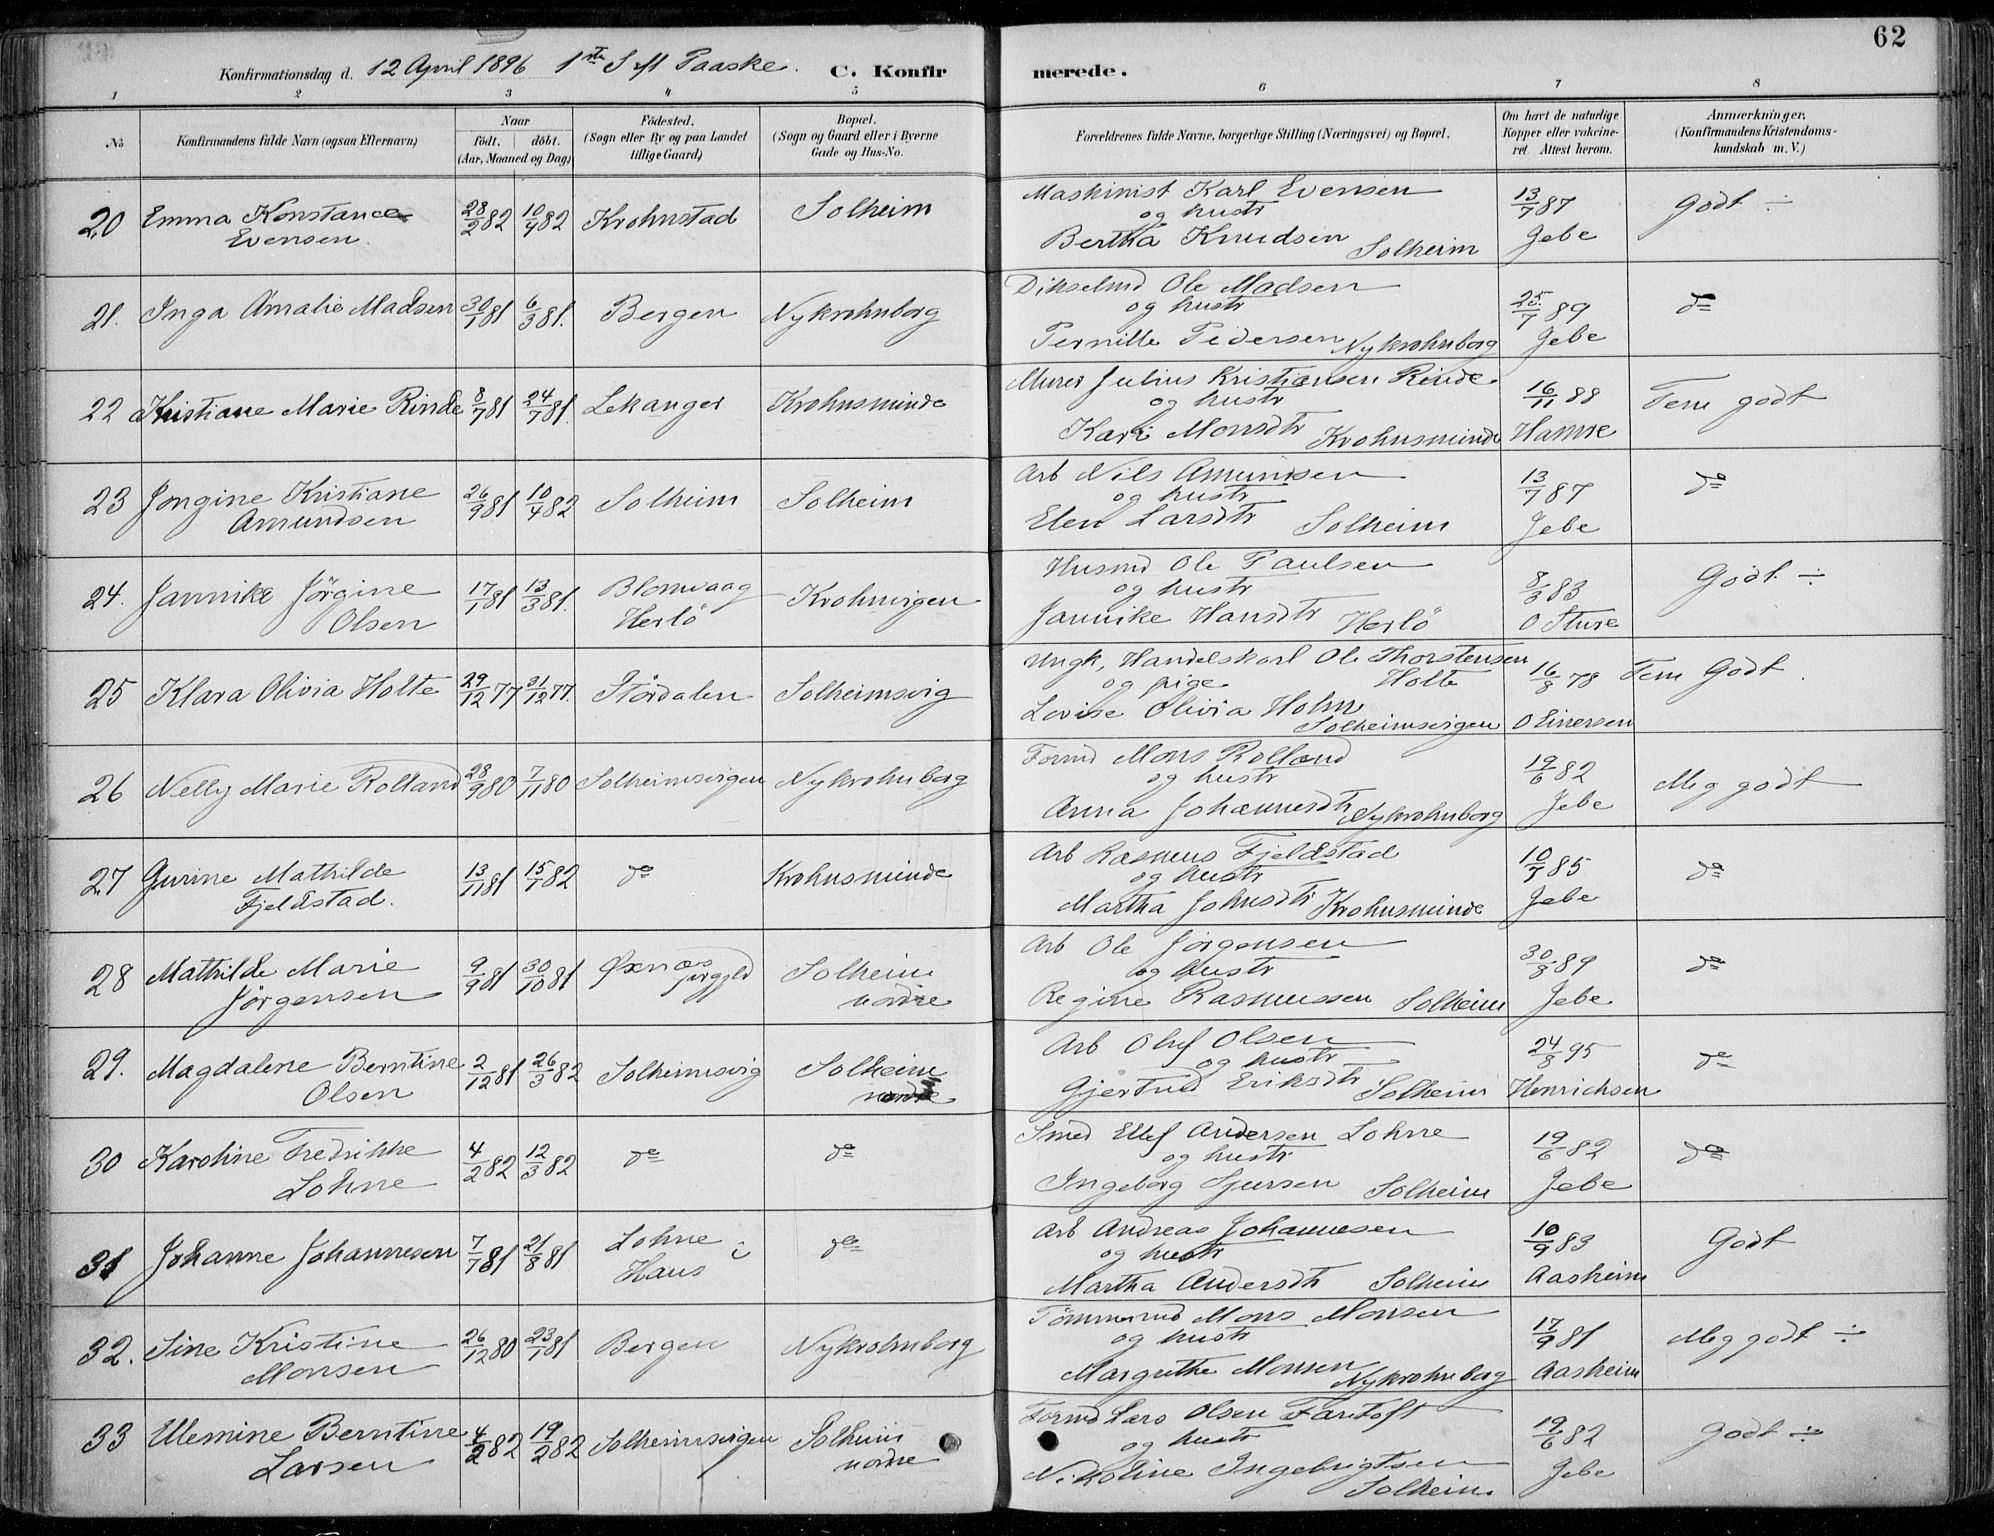 62
Konfirmationsdag d. 12 April 1896 1ste S M Paaske. C. Konfirmerede.
1 2 3 4 5 6 7 8
No
Konfirmandens fulde Navn (ogsaa Efternavn)
Naar
födt. döbt.
(Aar, Maaned og Dag)
Födested.
(Sogn eller By og paa Landet
tillige Gaard)
Bopæl.
(Sogn og Gaard eller i Byerne
Gade og Hus-No.
Forældrenes fulde Navne, borgerlige Stilling (Næringsvei) og Bopæl.
Om havt de naturlige
Kopper eller vakcine-
ret. Attest herom.
Anmærkninger,
(Konfirmandens Kristendoms-
kundskab m. V.)
20 Emma Konstance 28/2 82 10/9 82 Krohnstad Solheim Maskinist Karl Evensen 13/7 87 Godt ÷
Evensen. og hustr
Bertha Knudsen Solheim Jebe
21. Inga Amalie Madsen 30/1 81 6/3 81. Bergen Nykrohnborg Dikselmd Ole Madsen 25/7 89 do
og hustr
Pernille Pedersen Nykrohnborg Jebe
22 Kristiane Marie Rinde 8/7 81 24/7 81. Lekanger Krohnsminde Murer Julius Kristiansen Rinde 16/11 88 Tem godt
og hustr
Kari Monsdtr Krohnsminde Hamre
23 Jongine Kristiane 26/9 81 10/4 82 Solheim Solheim Arb Nils Amundsen 13/7 87 do
Amundsen og hustr
Elen Larsdtr Solheim Jebe
24. Jannike Jörgine 17/1 81 13/3 81. Blomvaag Krohnvigen Husmd Ole Paulsen 8/3 83 Godt ÷
Olsen Herlö og hustr
Jannike Hansdtr Herlö O Sture
25 Klara Olivia Holte 29/12 77 31/12 77. Stördalen Solheimsvig Ungk. Handelskarl Ole Thorstensen 16/8 78 Tem Godt.
og pige Holte
Lovise Olivia Holm
Solheimsvigen O Einersen
26 Nelly Marie Rolland 28/9 80 7/11 80 Solheimsvigen Nykrohnborg Formd Mons Rolland 19/6 82 Meg godt
og hustr
Anna Johannesdtr Nykrohnborg Jebe
27 Gurine Mathilde 13/11 81 15/1 82 do Krohnsminde Arb Rasmus Fjeldstad 10/7 85 do
Fjeldstad. og hustr
Martha Johnsdtr Krohnsminde Jebe
28 Mathilde Marie 9/9 81 30/10 81 Øxnæs Solheim Arb Ole Jörgensen 30/8 89 do
Jörgensen prggld nordre og hustr
Regine Rasmussen Solheim Jebe
29. Magdalene Berntine 2/12 81 26/3 82 Solheimsvig Solheim Arb Oluf Olsen 24/8 95 do
Olsen nordre og hustr
Gjertrud Eriksdtr Solheim Henrichsen
30 Karoline Fredrikke 4/2 82 12/3 82 do do Smed Ellef Andersen Lohne 19/6 82 do
Lohne og hustr
Ingeborg Sjursen Solheim Jebe
31 Johanne Johannesen 7/7 81 21/8 81 Lohne i do Arb Andreas Johannesen 10/9 83 Godt
Haus og hustr
Martha Andersdtr Solheim Aasheim
32. Sine Kristine 26/12 80 23/1 81 Bergen Nykrohnborg Tömmermd Mons Monsen 17/9 81 Meg godt ÷
Monsen og hustr
Margrethe Monsen Nykrohnborg Aasheim
33 Ulemine Berntine 4/2 82 19/2 82 Solheimsvigen Solheim Formd Lars Olsen Fartoft 19/6 82 Godt ÷
Larsen nordre og hustr
Nikoline Ingebrigtsen Jebe
Solheim.